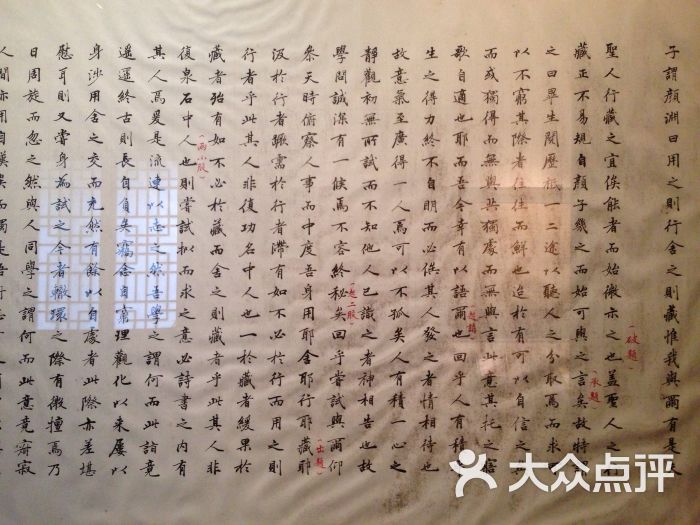 子謂顏淵曰用之則行舍之則藏惟我與爾有是夫
聖人行藏之宜俟能者而始微示之也蓋聖人之行
(破題)
藏正不易規自顏子幾之而始可與之言矣故特
(承題)
之曰畢生閱歷祇一二途以聽人之分取焉而求可
以不窮其際者往往而鮮也迨於有可以自信之
而或獨得而無與共獨處而無與言此意其托之寤
歌自適也耶而吾今幸有以語爾也回乎人有積一
(起講)
生之得力終不自明而必俟其人發之者情相待也
故意氣至廣得一人焉可以不孤矣人有積一心之
靜觀初無所試而不知他人已識之者神相告也故
學問誠深有一候焉不容終秘矣回乎嘗試與爾仰
(起二股)
參天時俯察人事而中度吾身用耶舍耶行耶藏耶
(出題)
汲於行者蹶需於行者滯有如不必於行而用之則
行者乎此其人非復功名中人也一於藏者緩果於
藏者殆有如不必於藏而舍之則藏者乎此其人非
復泉石中人也則嘗試擬而求之意必詩書之內有
(兩小股)
其人焉爰是流連以志之然吾學之謂何而此詣竟
遙遙終古則長自負矣竊念自窮理觀化以來屢以
身涉用舍之交而充然有餘以自處者此際亦差堪
慰耳則又嘗身為試之今者轍環之際有微擅焉乃
日周旋而忽之然與人同學之謂何而此意竟寂
人間亦用自嘆矣而獨是吾行
大众点评